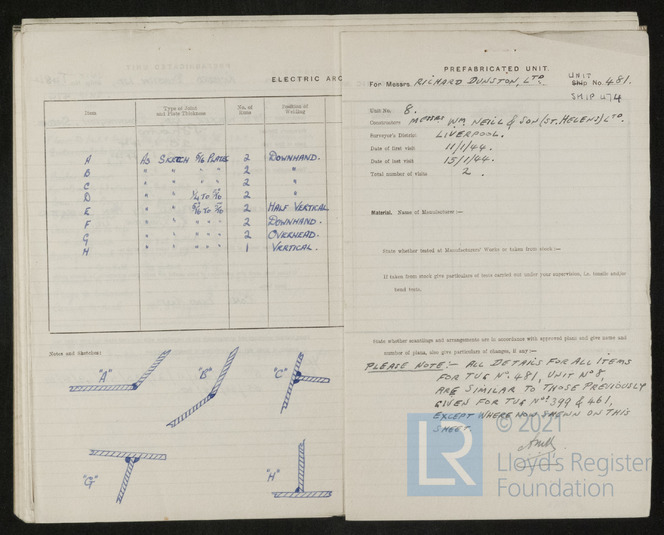 ELECTRIC ARC
Item
Type of Joint and Plate Thickness
No. of Items
Position of Welding
A As SKETCH 5/16 PLATE 2 DOWNHAND.
B " " " " 2 "
C " " " " 2 "
D " " 1/4 TO 5/16 2 "
E " " 5/16 TO 5/16 2 HALF VERTICAL
F " " " " 2 DOWNHAND.
G " " " " 2 OVERHEAD.
H " " " " 1 VERTICAL.
Notes and Sketches:
"A"
"B"
"C"
"G"
"H"
PREFABRICATED UNIT.
For Messrs. RICHARD DUNSTON, LTD. UNIT
Ship No. 481.
SHIP U74
Unit No. 8.
Constructors MESSRS WM. NEILL & SON (ST. HELENS) LTD.
Surveyor's District LIVERPOOL.
Date of first visit 11/1/44.
Date of last visit 15/1/44.
Total number of visits 2.
Material. Name of Manufacturer :—
State whether tested at Manufacturers' Works or taken from stock:—
If taken from stock give particulars of tests carried out under your supervision, i.e. tensile and/or
bend tests.
State whether scantlings and arrangements are in accordance with approved plans and give name and
number of plans, also give particulars of changes, if any :—
PLEASE NOTE:- ALL DETAILS FOR ALL ITEMS
FOR TUG No. 481, UNIT No 8
ARE SIMILAR TO THOSE PREVIOUSLY
GIVEN FOR TUG Nos 399 & 461,
EXCEPT WHERE NOW SHEWN ON THIS
SHEET.
© 2021
LR
Lloyd's Register
Foundation